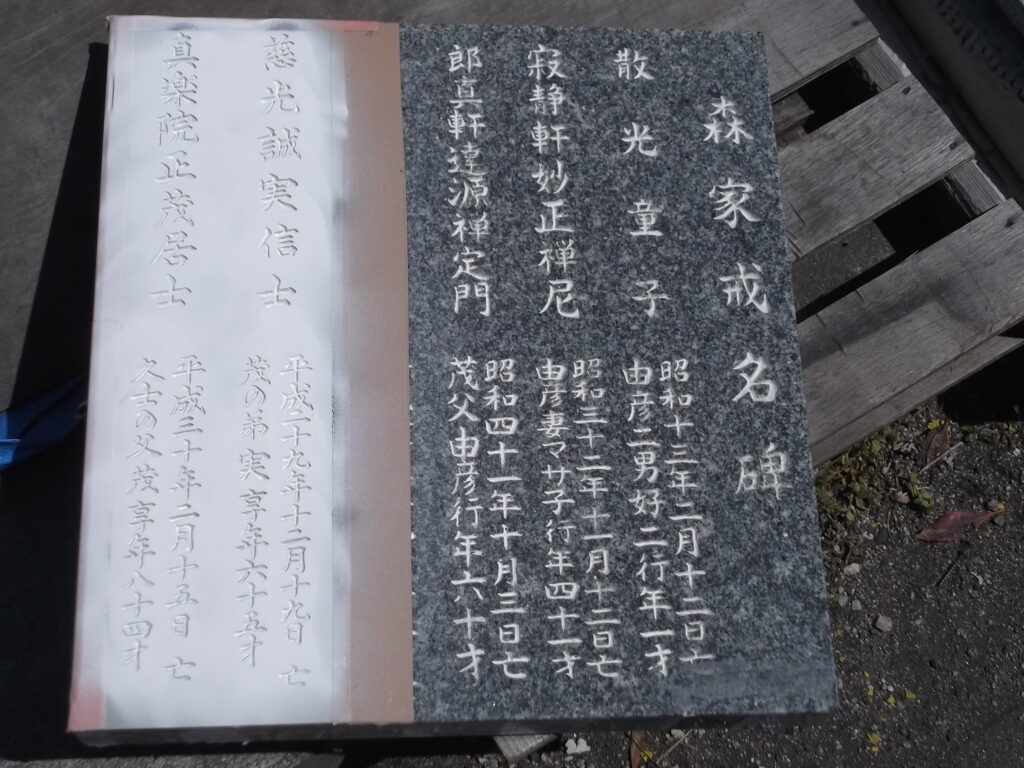 森家戒名碑
散光童子
昭和十三年二月十二日亡
由彦二男好二行年一才
寂静軒妙正禅尼
昭和三十二年十一月十二日亡
由彦妻マサ子行年四十一才
郎真軒蓮源禅定門
昭和四十一年十月三日亡
茂父由彦行年六十才
慈光誠実信士
平成二十九年十二月十九日亡
茂の弟実享年六十五才
真楽院正茂居士
平成三十年二月十五日亡
久士の父茂享年八十四才